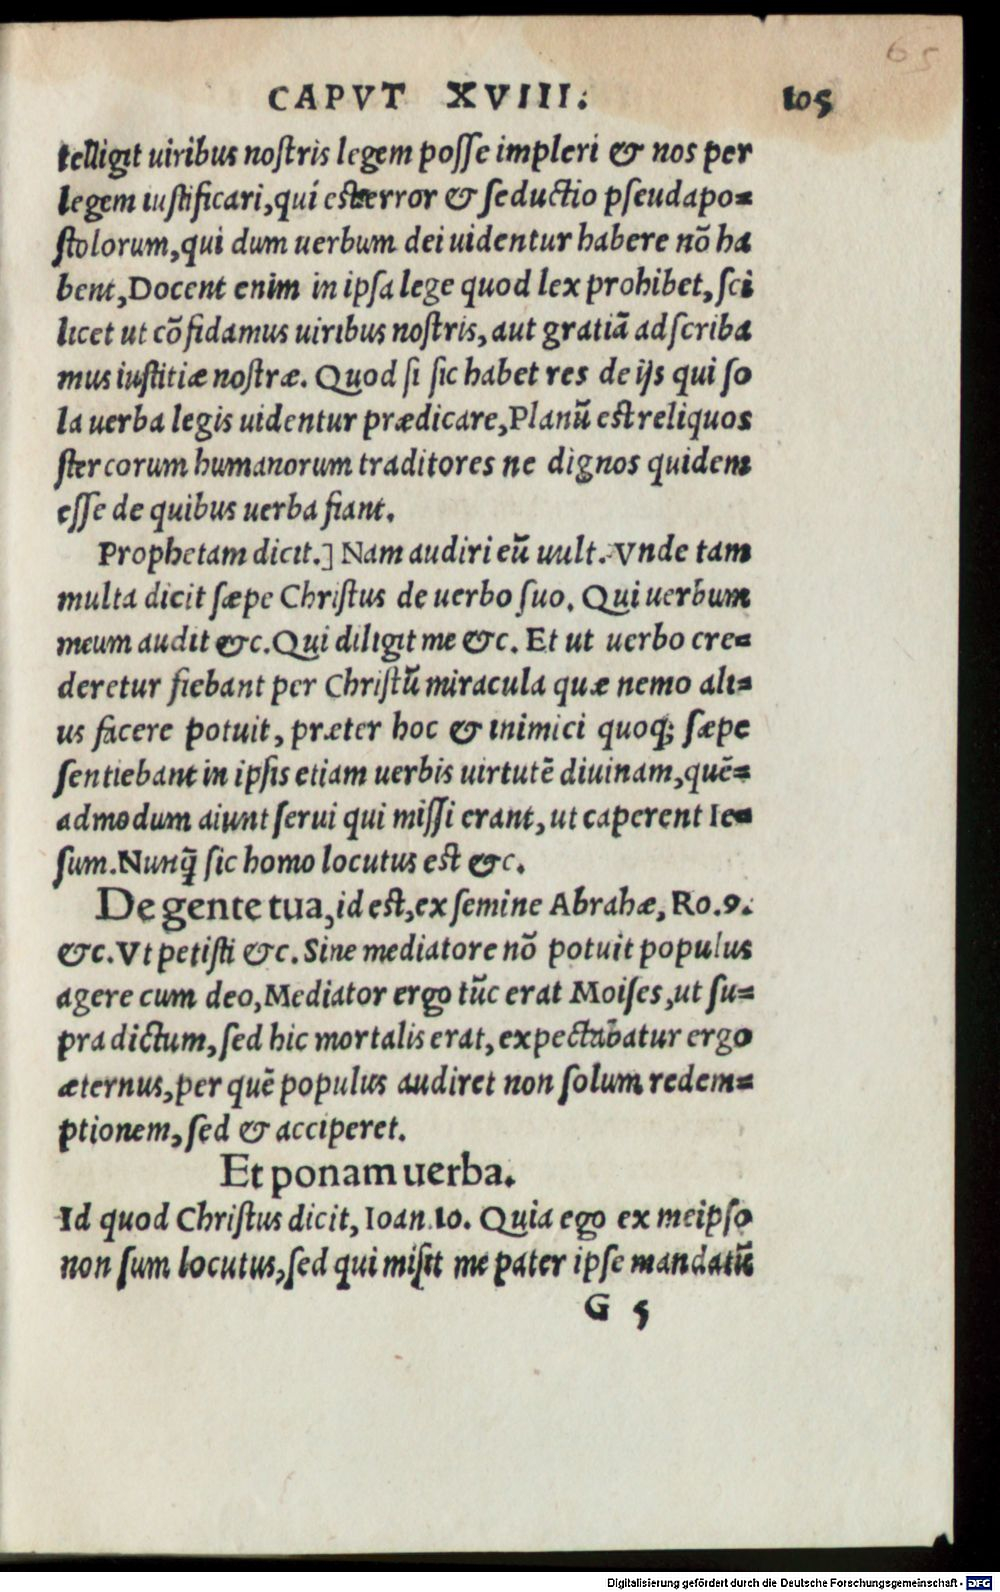 65
CAPVT XVIII. 105
telligit uiribus nostris legem posse impleri & nos per
legem iustificari, qui est error & seductio pseudapo=
stolorum, qui dum uerbum dei uidentur habere nō ha
bent, Docent enim in ipsa lege quod lex prohibet, sci
licet ut cōfidamus uiribus nostris, aut gratiā adscriba
mus iustitiæ nostræ. Quod si sic habet res de ijs qui so
la uerba legis uidentur prædicare, Planū est reliquos
stercorum humanorum traditores ne dignos quidem
esse de quibus uerba fiant.
Prophetam dicit.] Nam audiri eū uult. Vnde tam
multa dicit sæpe Christus de uerbo suo. Qui uerbum
meum audit &c. Qui diligit me &c. Et ut uerbo cre=
deretur fiebant per Christū miracula quæ nemo ali=
us facere potuit, præter hoc & inimici quoq; sæpe
sentiebant in ipsis etiam uerbis uirtutē diuinam, quē=
admodum aiunt serui qui missi erant, ut caperent Ie=
sum. Nunq̃ sic homo locutus est &c.
De gente tua, id est, ex semine Abrahæ, Ro. 9.
&c. Vt petisti &c. Sine mediatore nō potuit populus
agere cum deo, Mediator ergo tūc erat Moises, ut su=
pra dictum, sed hic mortalis erat, expectabatur ergo
æternus, per quē populus audiret non solum redem=
ptionem, sed & acciperet.
Et ponam uerba.
Id quod Christus dicit, Ioan. 10. Quia ego ex meipso
non sum locutus, sed qui misit me pater ipse mandatū
G 5
Digitalisierung gefördert durch die Deutsche Forschungsgemeinschaft - DFG